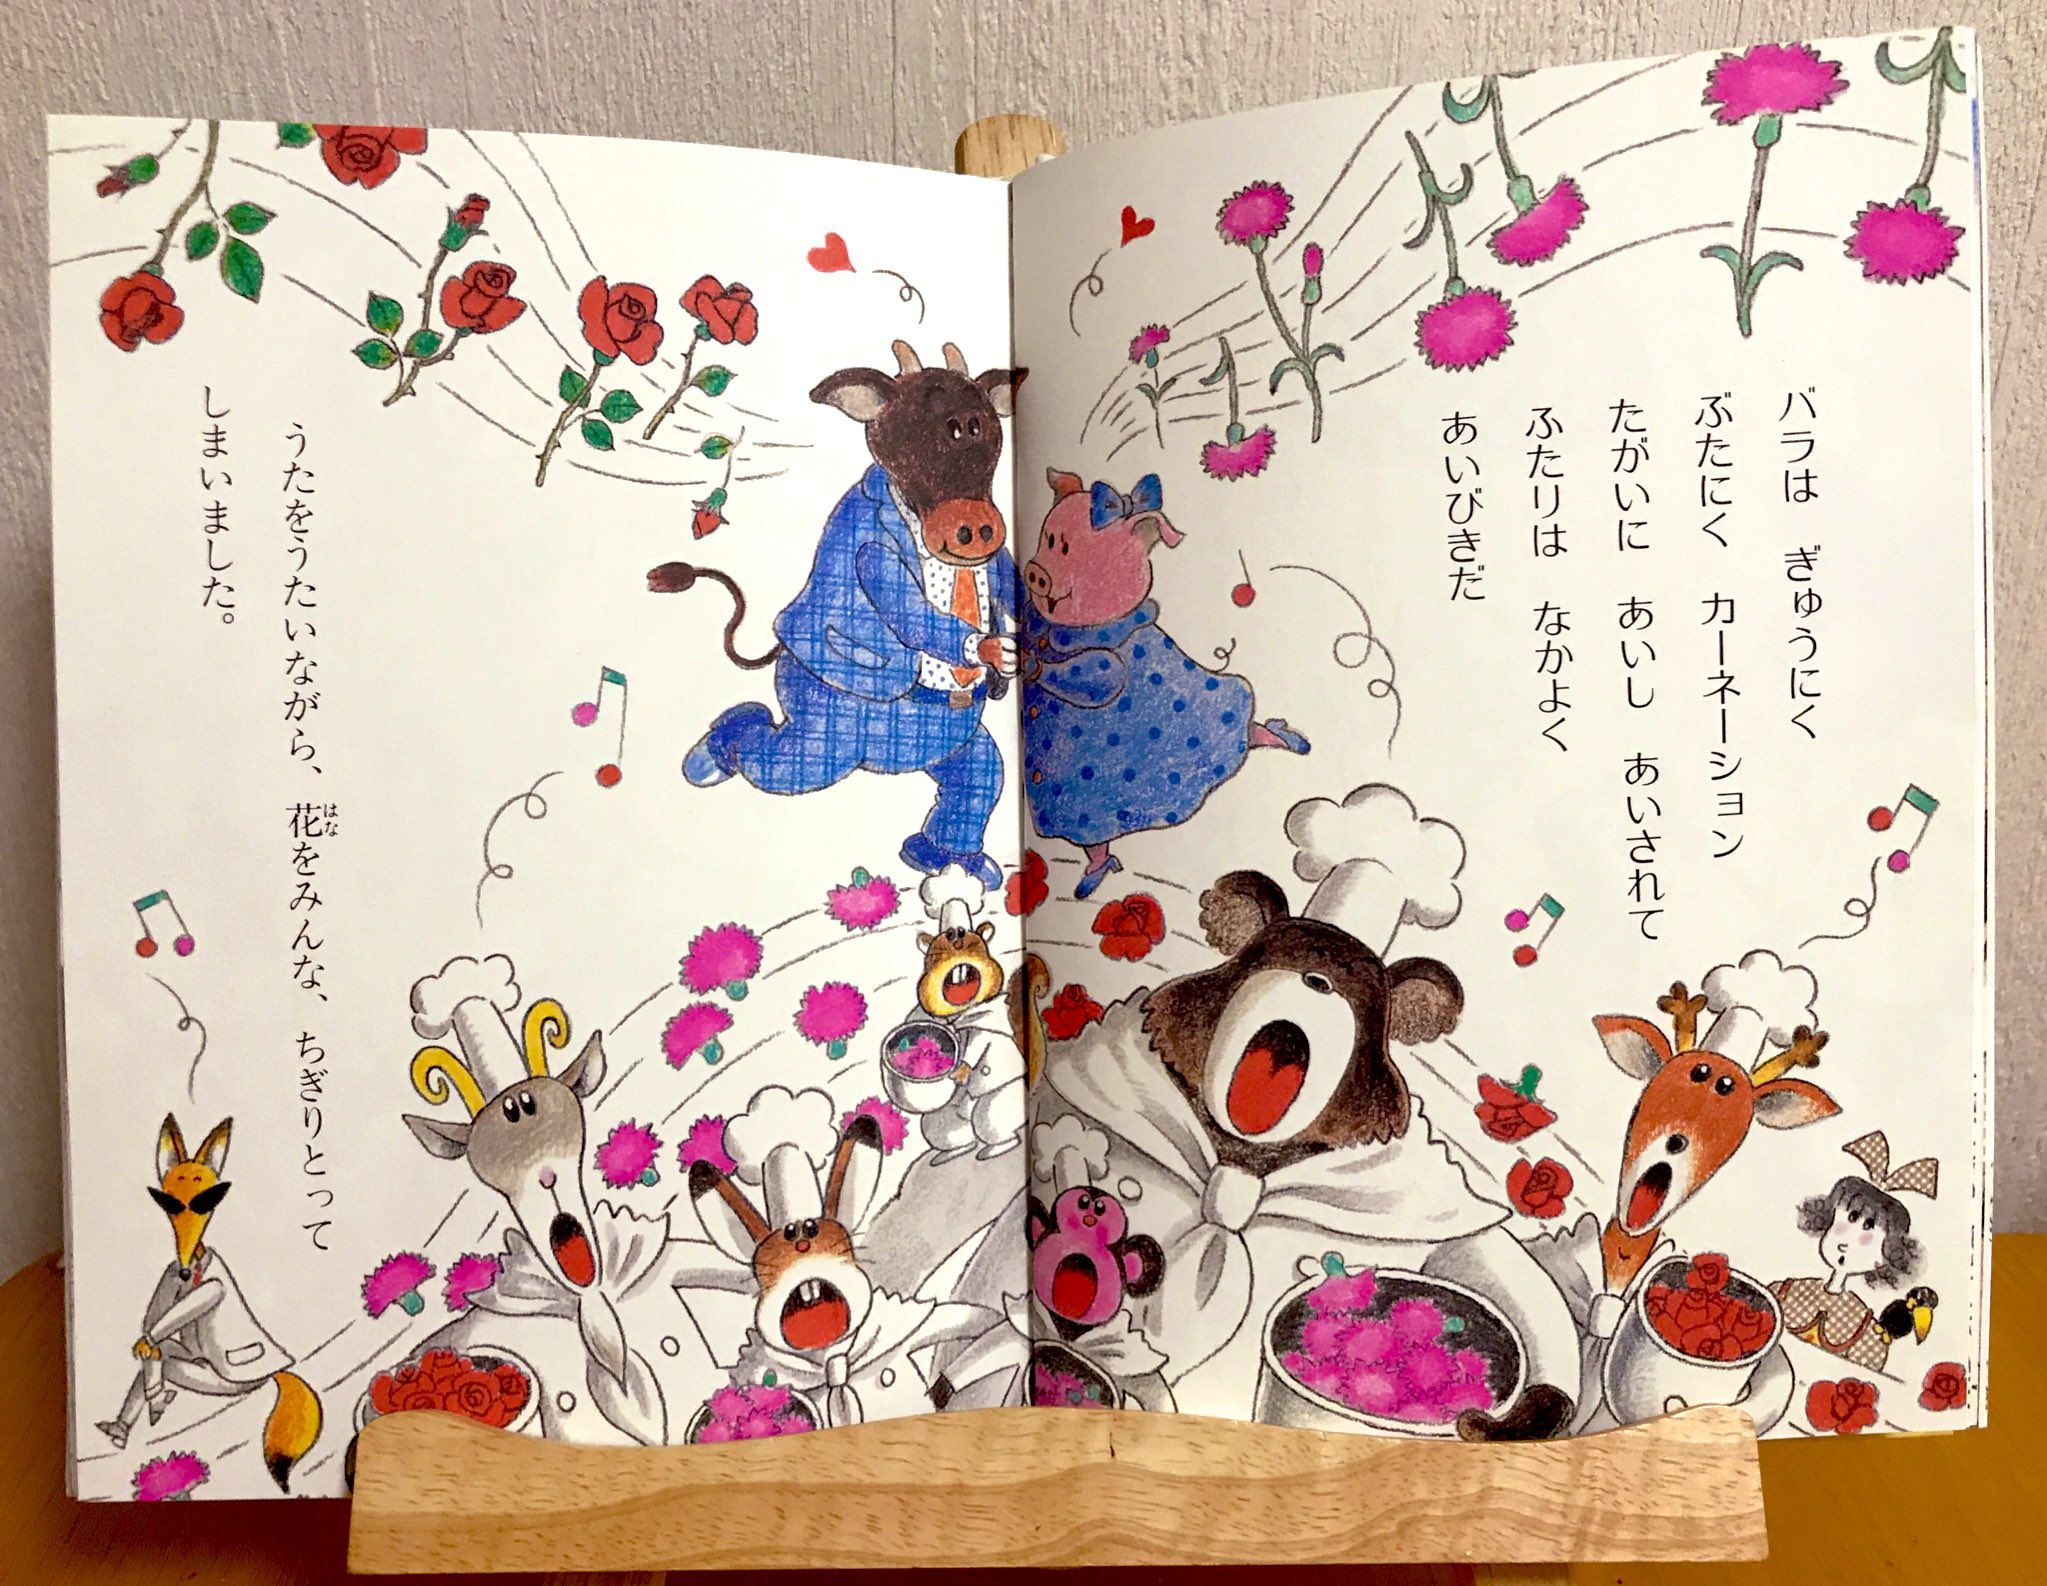 バラは ぎゅうにく
ぶたにく カーネーション
たがいに あいし あいされて
ふたりは なかよく
あいびきだ
うたをうたいながら、花をみんな、ちぎりとって
はな
しまいました。